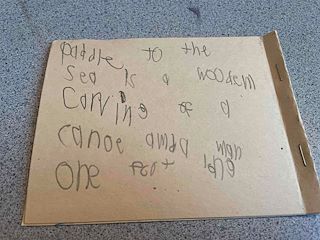 paddle to the
Sea is a woodem
Carving of a
canoe amda man
one foot